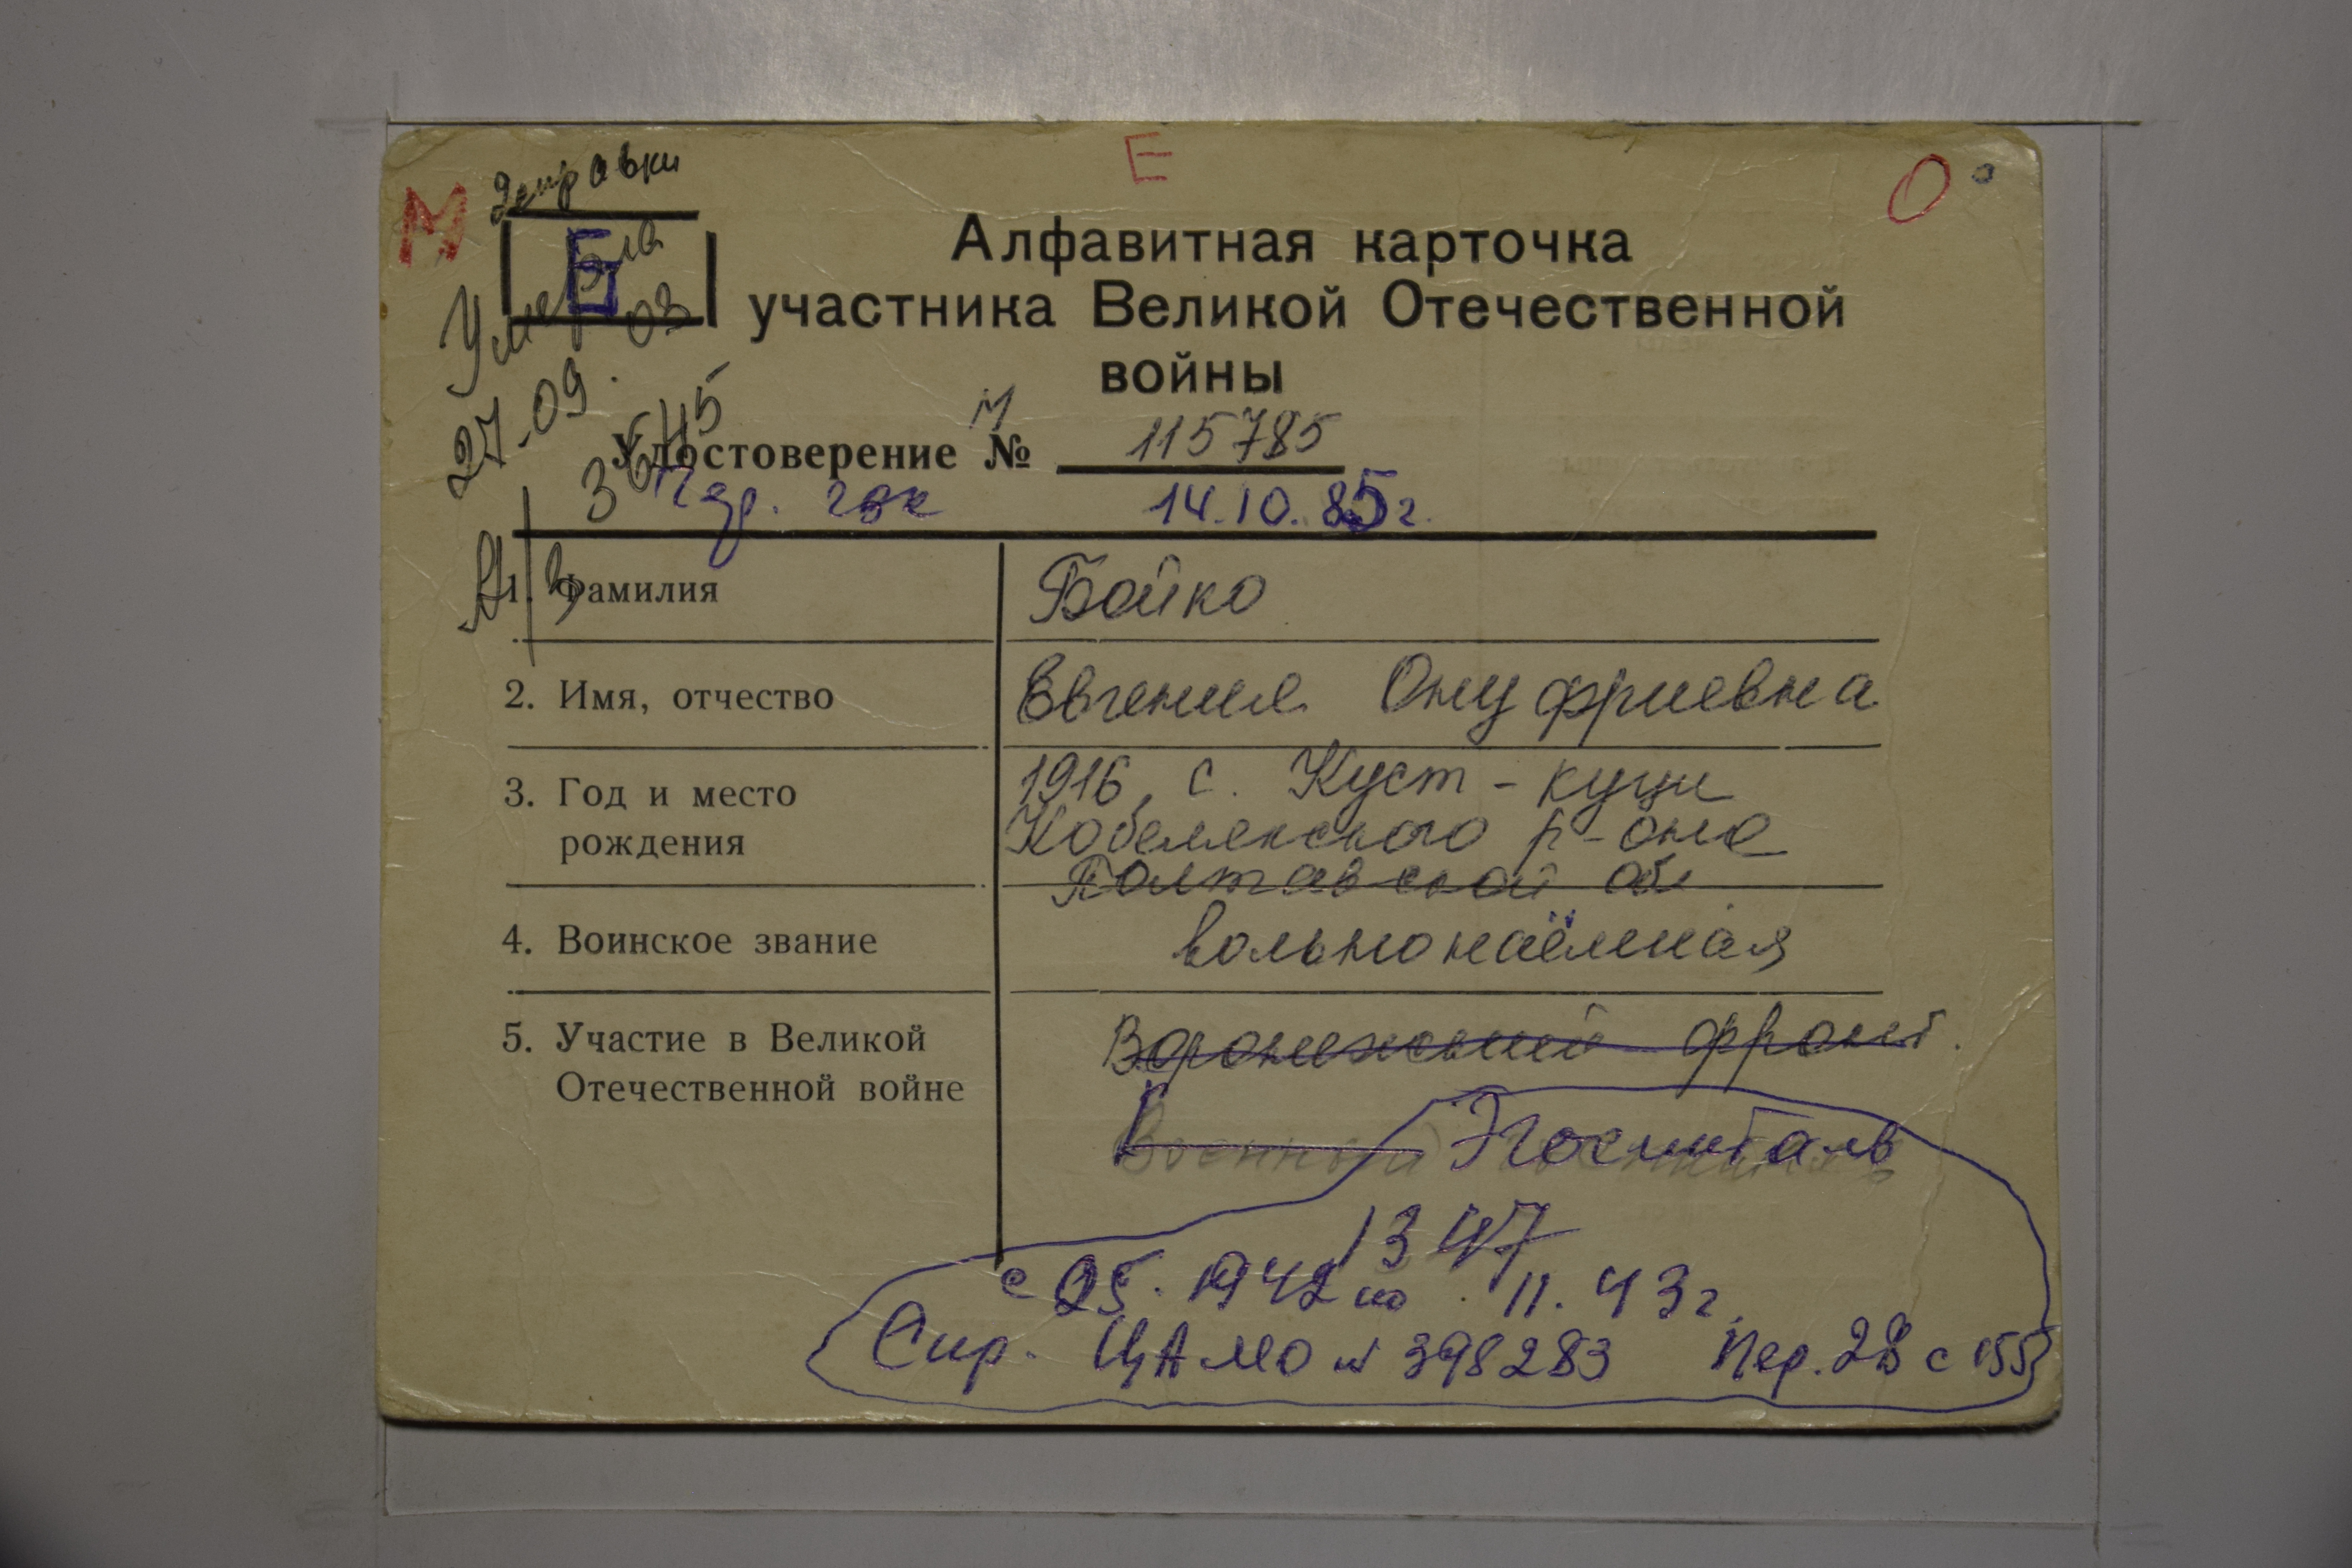 Е
М О
справки
Б
Умерла
27.09.03
Алфавитная карточка
участника Великой Отечественной
войны
М
Удостоверение № 115785
14.10.85г.
1. Фамилия Бойко
2. Имя, отчество Евгения Онуфриевна
3. Год и место 1916, с. Куст-кущи
рождения Кобелякского р-она
Полтавской обл
4. Воинское звание вольнонаёмная
5. Участие в Великой Воронежский фронт.
Отечественной войне
Военный Эгоспиталь
1347
с 05.1942 по 11.43г.
Спр. ЦАМО № 398283 Пер. 28 с 155